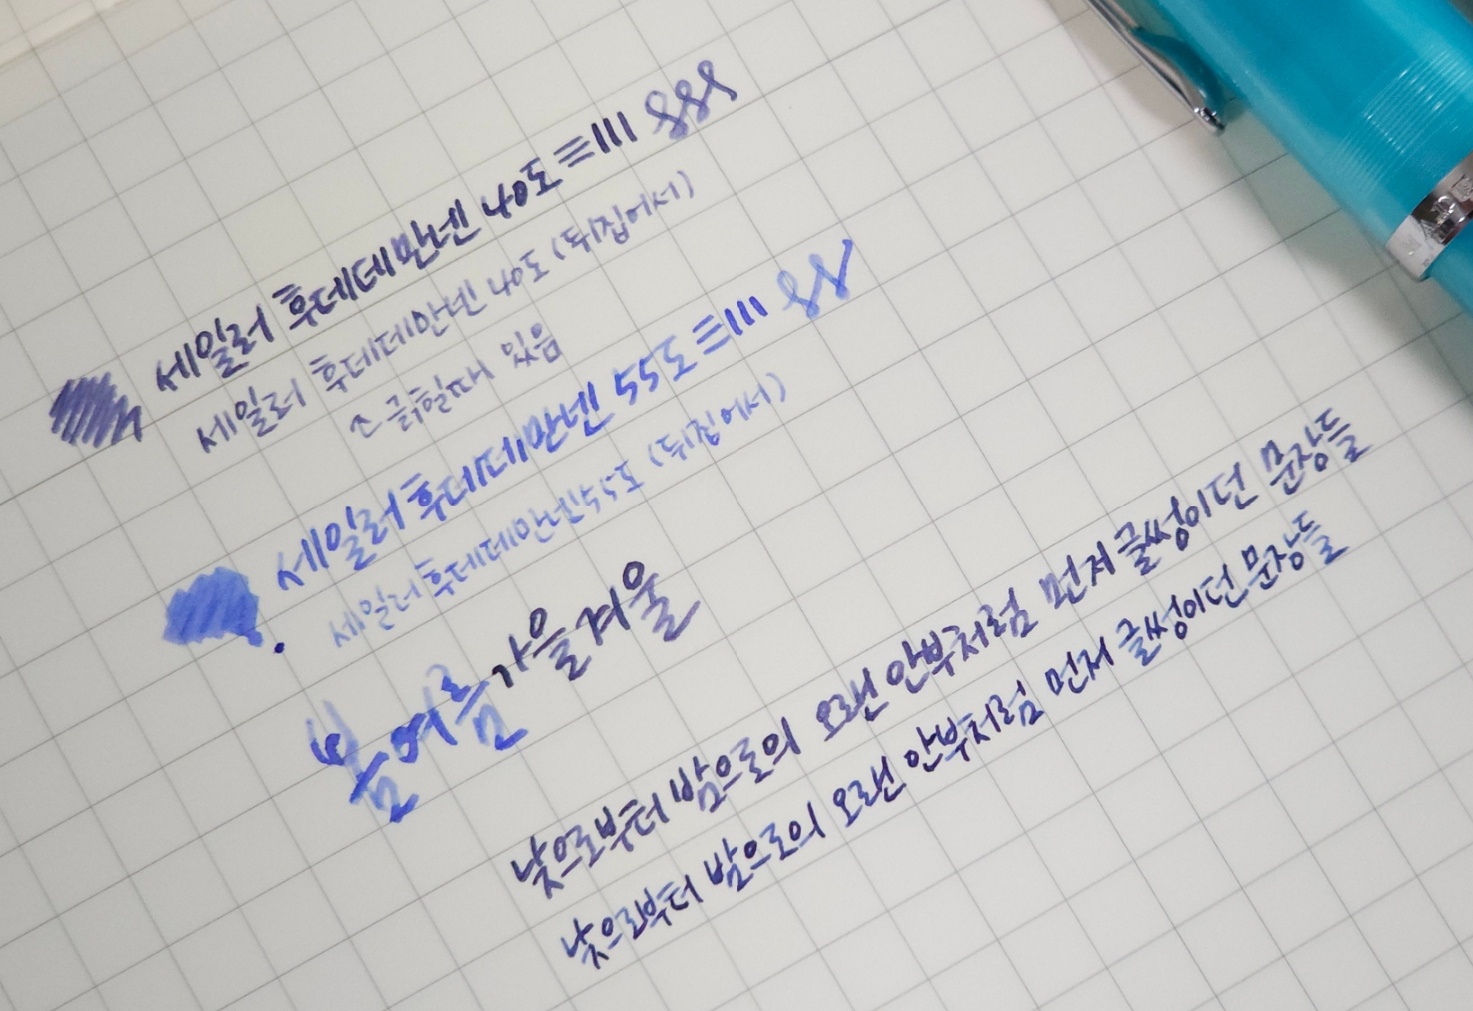 세일러 후데데만넨 40도
세일러 후데데만넨 40도 (뒤집어서)
↑ 긁힐때 있음
세일러 후데데만넨 55도
세일러 후데데만넨 55도 (뒤집어서)
봄여름가을겨울
낮으로부터 밤으로의 오랜 안부처럼 먼저 글썽이던 문장들
낮으로부터 밤으로의 오랜 안부처럼 먼저 글썽이던 문장들